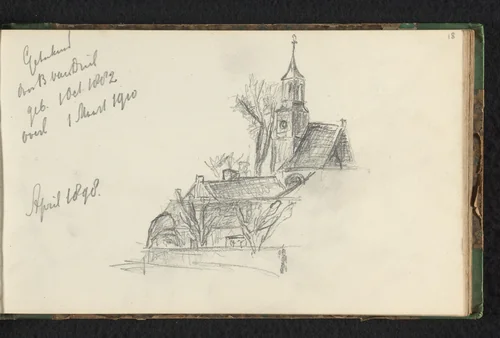 Getekend
door B van Driel
geb. 1 Oct 1882
overl 1 Maart 1910
April 1898.
18